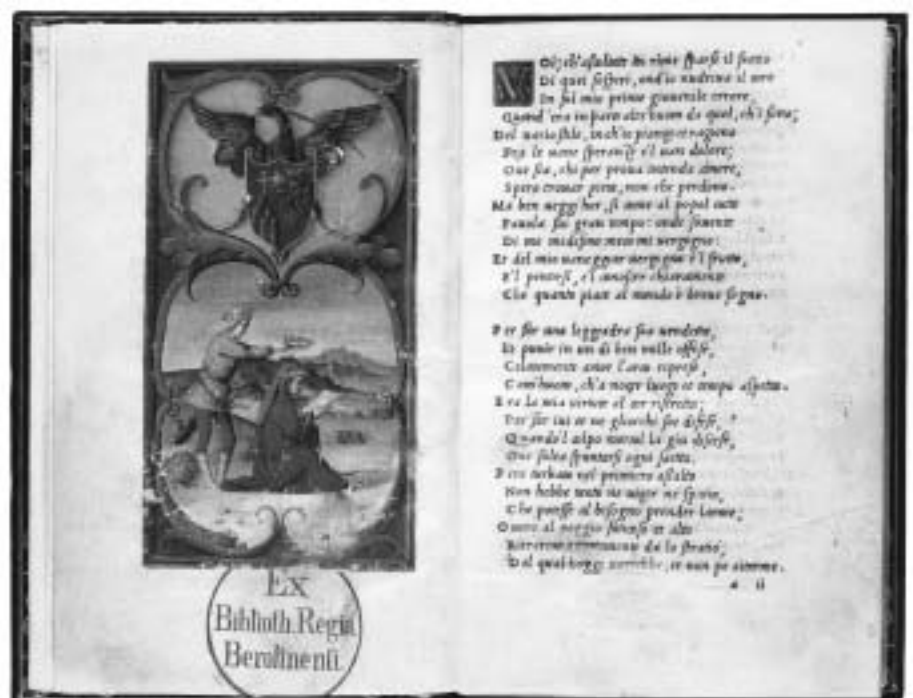 Ex
Biblioth. Regia
Berolinensi.
Oi, ch'ascoltate in rime sparse il suono
Di quei sospiri, ond'io nudriua il core
In sul mio primo giouenile errore,
Quand'era in parte altr'huom da quel, ch'i sono;
Del uario stile, in ch'io piango et ragiono
Fra le uane speranze e'l uan dolore;
Oue sia, chi per proua intenda amore,
Spero trouar pieta, non che perdono.
Ma ben ueggi hor, si come al popol tutto
Fauola fui gran tempo: onde souente
Di me medesmo meco mi uergogno:
Et del mio uaneggiar uergogna e'l frutto,
E'l pentersi, e'l conoscer chiaramente
Che quanto piace al mondo è breue sogno.
Per far una leggiadra sua uendetta,
Et punir in un di ben mille offese,
Celatamente amor l'arco riprese,
Com'huom, ch'a nocer luogo et tempo aspetta.
Era la mia uirtute al cor ristretta;
Per far iui et ne gliocchi sue difese,
Quando'l colpo mortal la giu discese,
Oue solea spuntarsi ogni saetta.
Pero turbata nel primiero assalto
Non hebbe tanto ne uigor ne spatio,
Che potesse al bisogno prender l'arme;
O uero al poggio faticoso et alto
Ritrarmi accortamente da lo stratio,
Dal qual hoggi uorrebbe, et non po aitarme.
a ii